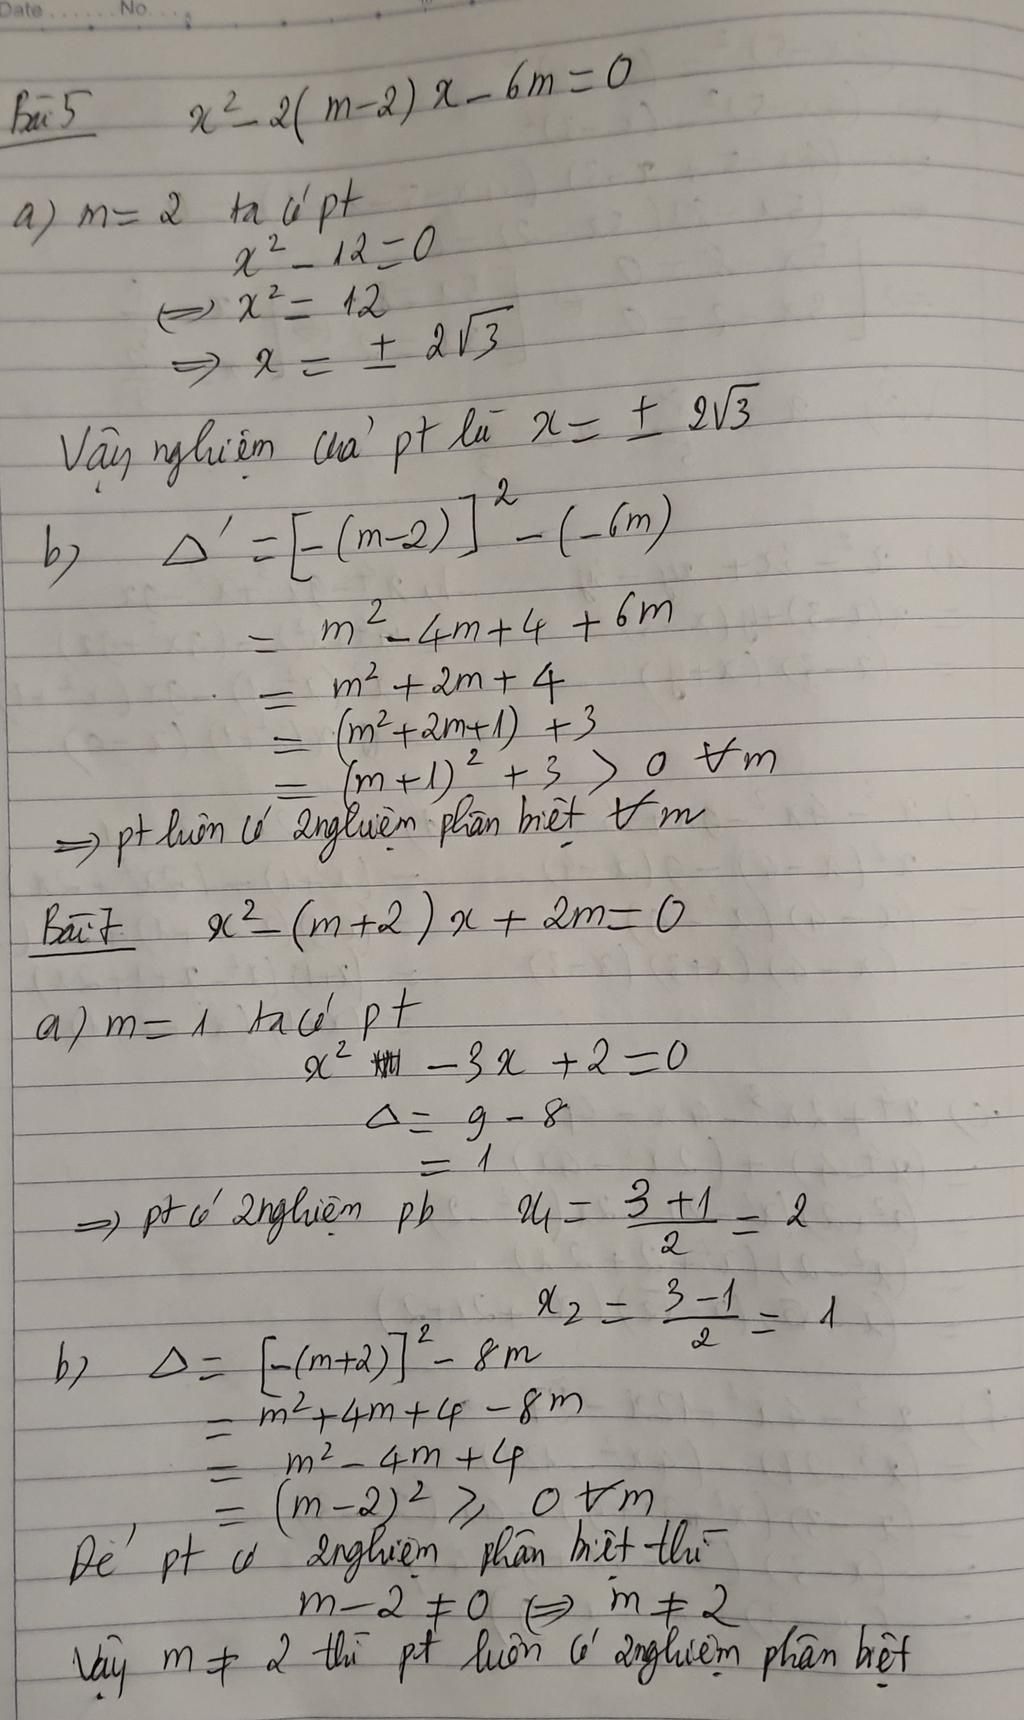 Date ........ No. ...
Bài 5 x² - 2(m-2)x - 6m = 0
a) m = 2 ta có pt
x² - 12 = 0
⇔ x² = 12
⇒ x = ± 2√3
Vậy nghiệm của pt là x = ± 2√3
b) Δ' = [-(m-2)]² - (-6m)
= m² - 4m + 4 + 6m
= m² + 2m + 4
= (m² + 2m + 1) + 3
= (m+1)² + 3 > 0 ∀m
⇒ pt luôn có 2 nghiệm phân biệt ∀m
Bài 7 x² - (m+2)x + 2m = 0
a) m = 1 ta có pt
x² - 3x + 2 = 0
Δ = 9 - 8
= 1
⇒ pt có 2 nghiệm pb x₁ = (3+1)/2 = 2
x₂ = (3-1)/2 = 1
b) Δ = [-(m+2)]² - 8m
= m² + 4m + 4 - 8m
= m² - 4m + 4
= (m-2)² ≥ 0 ∀m
Để pt có 2 nghiệm phân biệt thì
m - 2 ≠ 0 ⇔ m ≠ 2
Vậy m ≠ 2 thì pt luôn có 2 nghiệm phân biệt